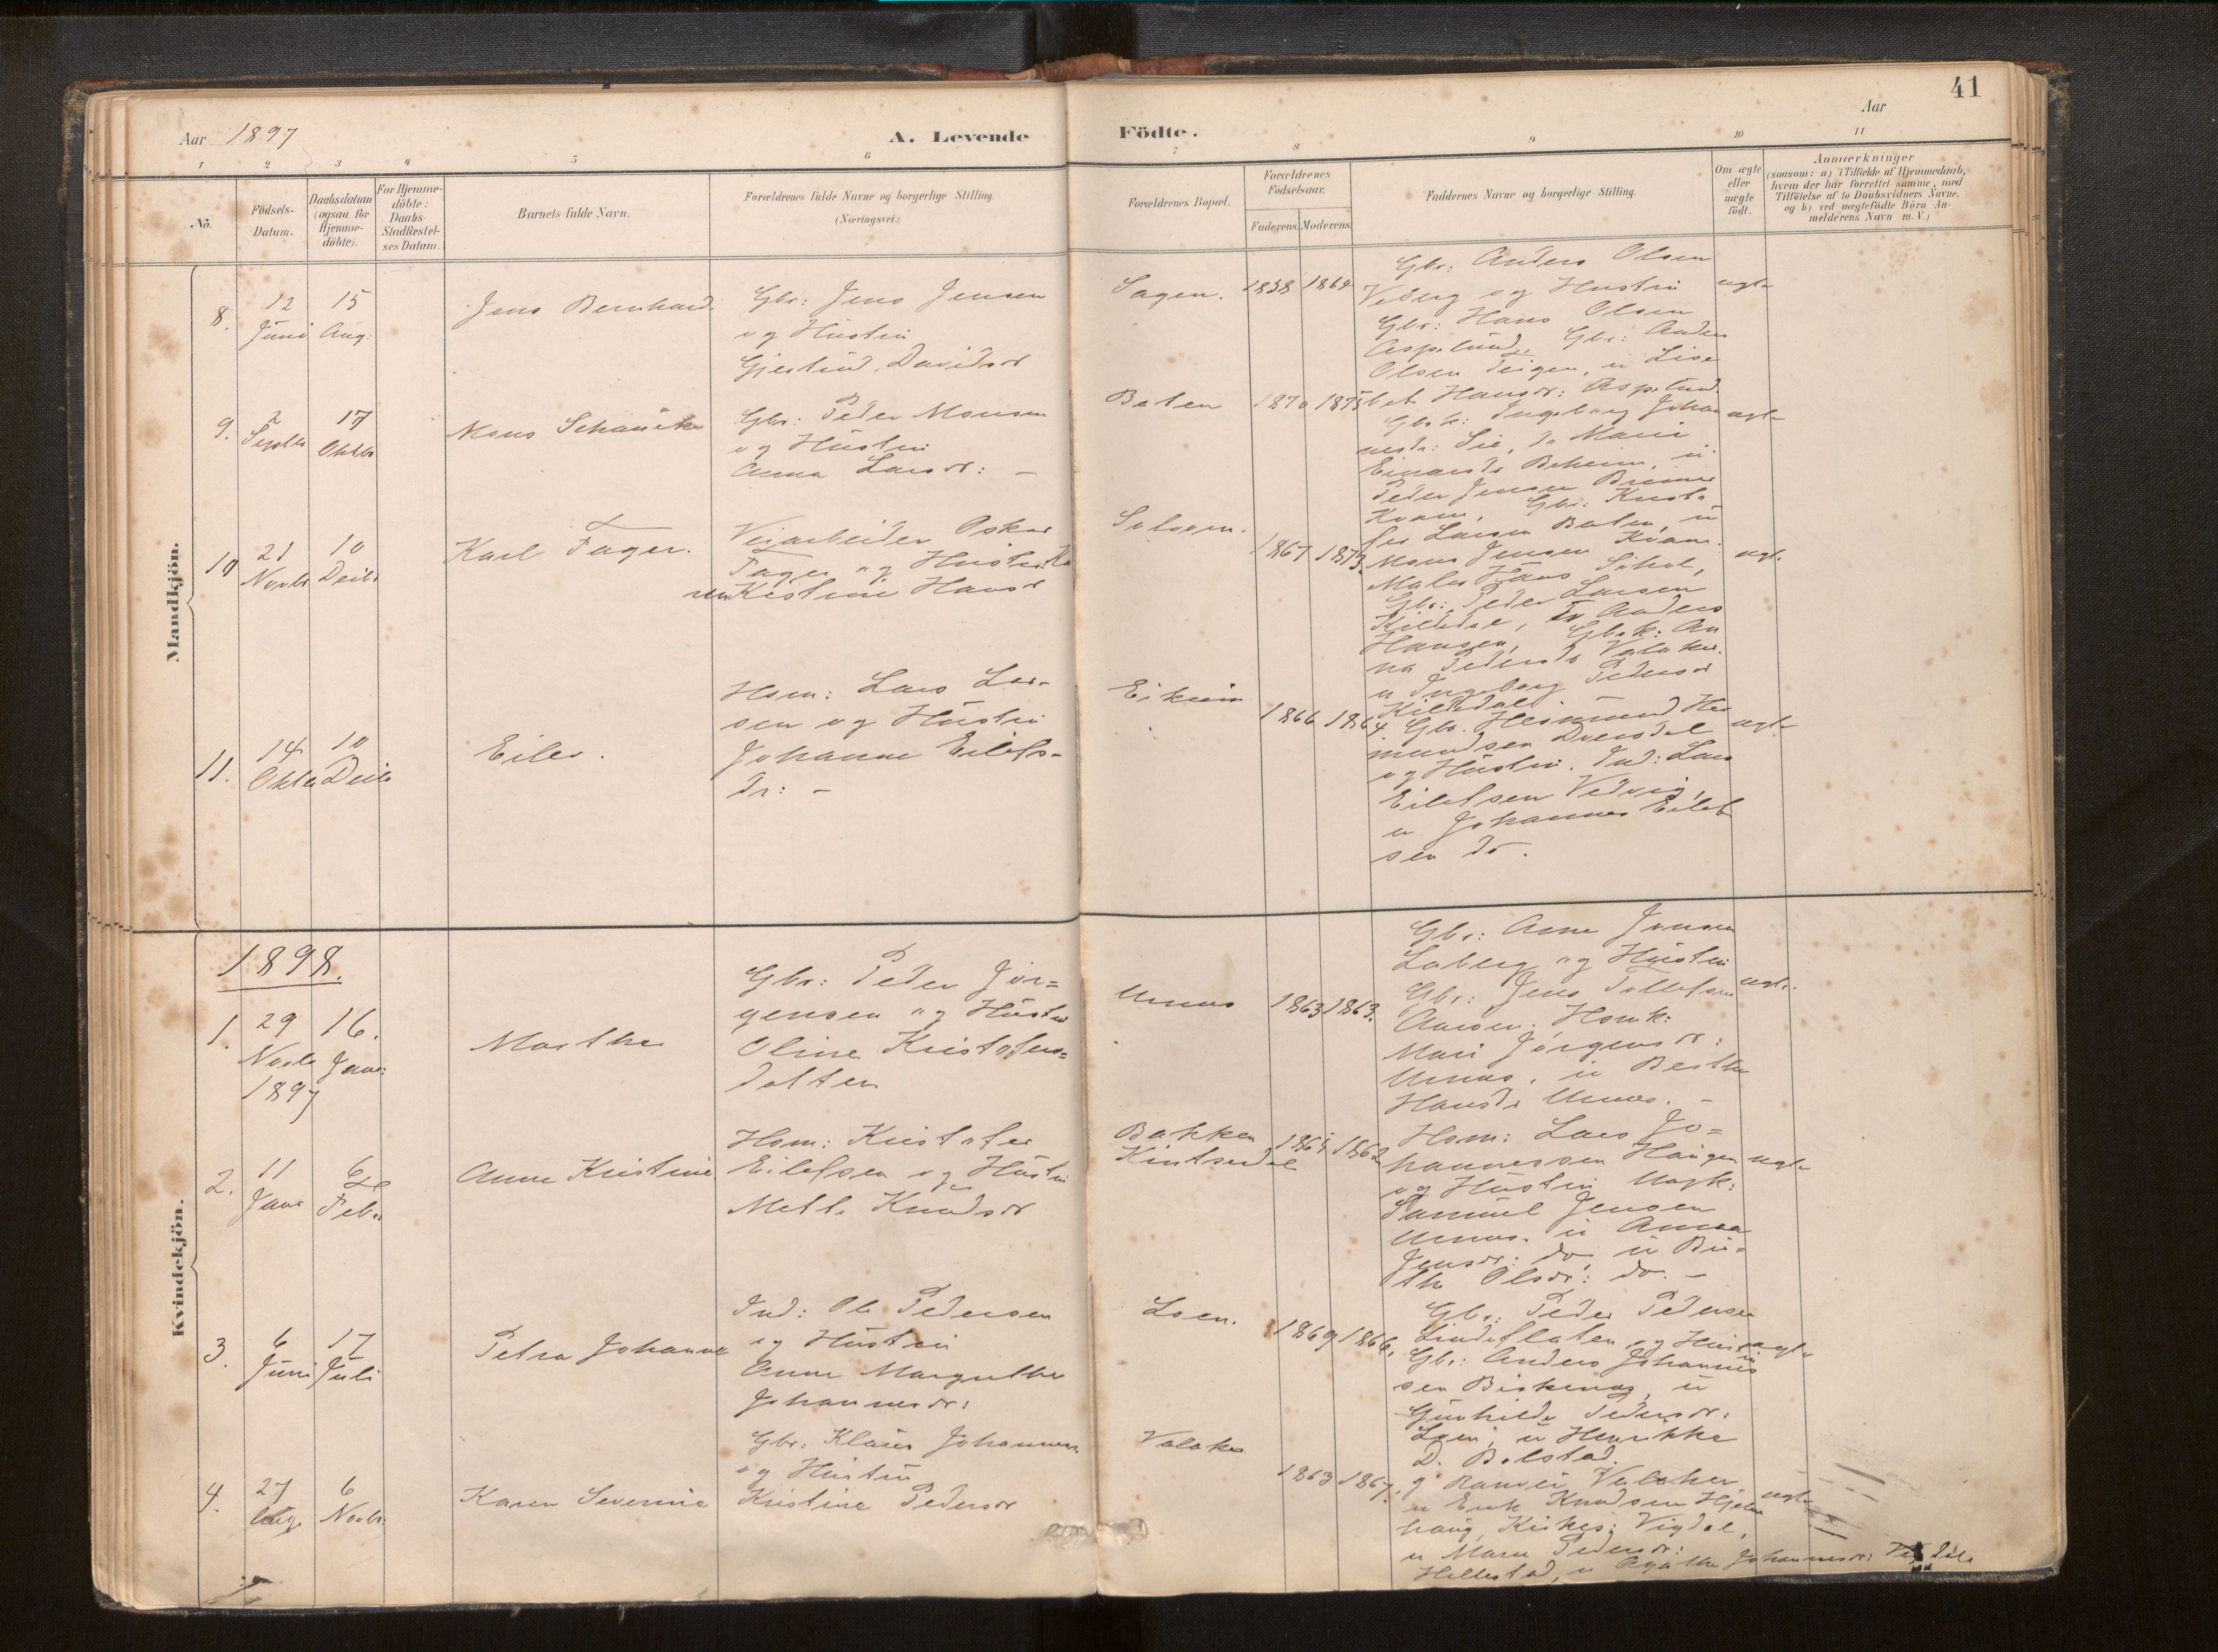 41
Aar 1897
A. Levende
Födte.
Aar
1 2 3 4 5 6 7 8 9 10 11
No.
Födsels-Datum.
Daabsdatum (ogsaa for Hjemme-döbte).
For Hjemme-döbte: Daabs-Stadfæstel-ses Datum.
Barnets fulde Navn.
Forældrenes fulde Navne og borgerlige Stilling.
(Næringsvei.)
Forældrenes Bopæl.
Forældrenes Födselsaar.
Faderens. Moderens.
Faddernes Navne og borgerlige Stilling.
Om ægte eller uægte födt.
Anmærkninger
(saasom: a) i Tilfælde af Hjemmedaab,
hvem der har forrettet samme, med
Tilföielse af to Daabsvidners Navne.
og b) ved uægtefödte Börn An-
melderens Navn m. V.)
Mandkjön.
8.
12 Juni
15 Aug:
Jens Bernhard.
Gbr: Jens Jensen
og Hustru
Gjertrud Davidsdr
Sagen.
1838
Gbr: Anders Olsen
Veberg og Hustru
Gbr: Hans Olsen
Asp­elund, Gbr: Anders
Olsen Teigen, u Lisa
bet Hansdr: Aspelund.
ægte
9.
2 Septbr
17 Oktbr
Mons Schanche
Gbr: Peder Monsen
og Hustru
Anna Larsdr: –
Bolen
1870 1875
Gbrk: Ingeborg Johan
nesdr: Lie, do Marie
Einarsdr Boheim, u
Peder Jensen
Kvam, Gbr: Kristo
fer Larsen Bolen, u
Mons Jensen Kvam.
ægte
10
21 Novbr
10 Decbr
Karl Fager.
Veiarbeider Oskar
Fager og Hustru Ka
ren Kristine Hansdr
Solvorn.
1867 1873.
Maler Hans
Gbr: Peder Larsen
Kilidal, Anders
Hansen, Gbrk: An
na Pedersdr Valaker.
u Ingeborg Pedersdr
Kilidal
ægte
11.
14 Oktbr
10 Decbr
Eilev.
Hsm: Lars Lar-
sen og Hustru
Johanne Eilefs-
dr: –
Eikum
1866 1864.
Gbr. Heimund Hei
mundsen
og Hustru. Ind: Lars
Eilefsen
u Johannes Eilef
sen do.
ægte
Kvindekjön.
1898.
1.
29 Novbr 1897
16. Janr:
Marthe
Gbr: Peder Jør=
gensen og Hustru
Oline Kristofers=
datter
Urnæs
1863 1863.
Gbr: Arne Jensen
Laberg og Hustru
Gbr: Jens Tollefsen
Hsmk:
Mari Jørgensdr:
Urnæs, u Berthe
Hansdr Urnæs. –
ægte
2.
11 Janr
6 Febr
Anne Kristine
Hsm: Kristofer
Eilefsen og Hustru
Mette Knudsdr
Bakken
Kinserdal
Hsm: Lars Jo=
hannessen Haugen
og Hustru Ungk:
Samuel Jensen
Urnæs. u Anna
Jensdr: do, u Bri=
the Olsdr: do. –
ægte
3.
6 Juni
17 Juli
Petra Johanna
Ind: Ole Pedersen
og Hustru
Anne Margrethe
Johannesdr:
Loen.
1869 1866.
Gbr: Peder Pedersen
Lindeflaten og Hustru
Gbr: Anders Johannes
sen Bjørkenæs, u
Gunhilde Pedersdr:
Loen, u Henrikke
D. Bolstad.
ægte
4.
27 Aug.
6 Novbr.
Karen Severine
Gbr: Klaus Johannes
og Hustru
Kristine Pedersdr
Valaker
1863 1867.
Valaker
u Erik Knudsen Hjelm
haug, Kirkes: Vigdal,
u Maria Pedersdr:
Hillestad, u Agathe Johannesdr:
ægte